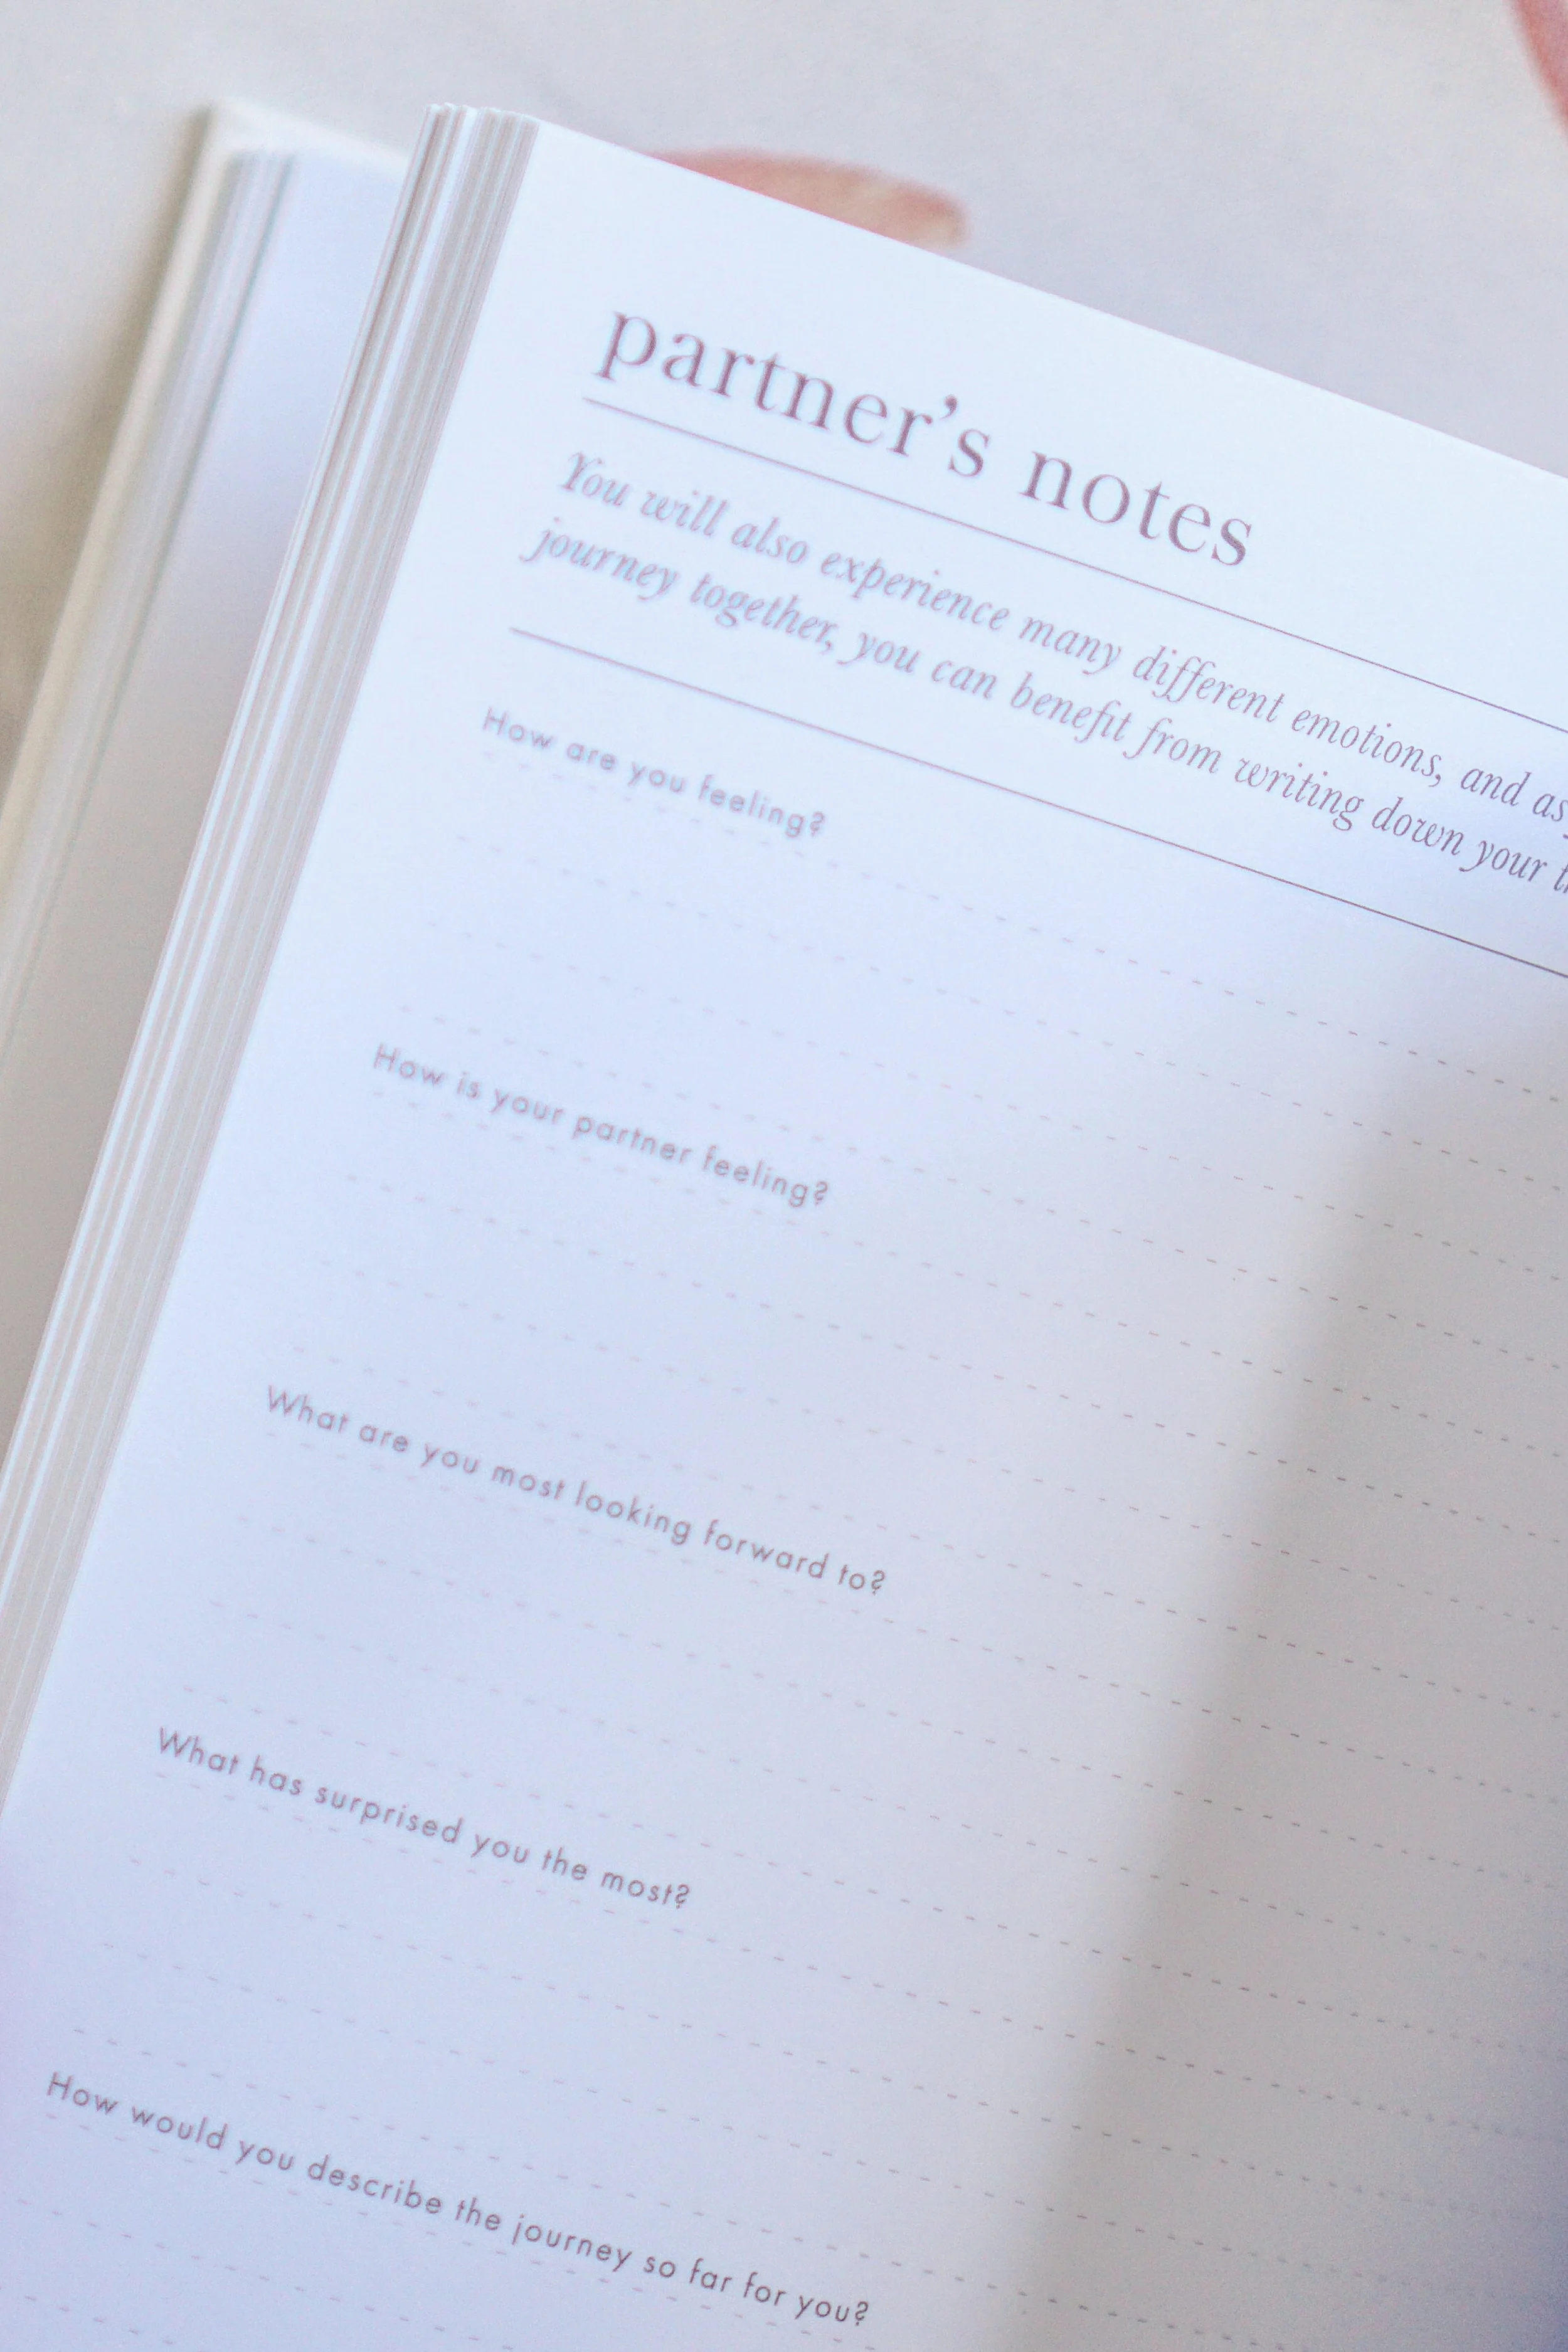 partner's notes
You will also experience many different emotions, and as
journey together, you can benefit from writing down your
How are you feeling?
How is your partner feeling?
What are you most looking forward to?
What has surprised you the most?
How would you describe the journey so far for you?